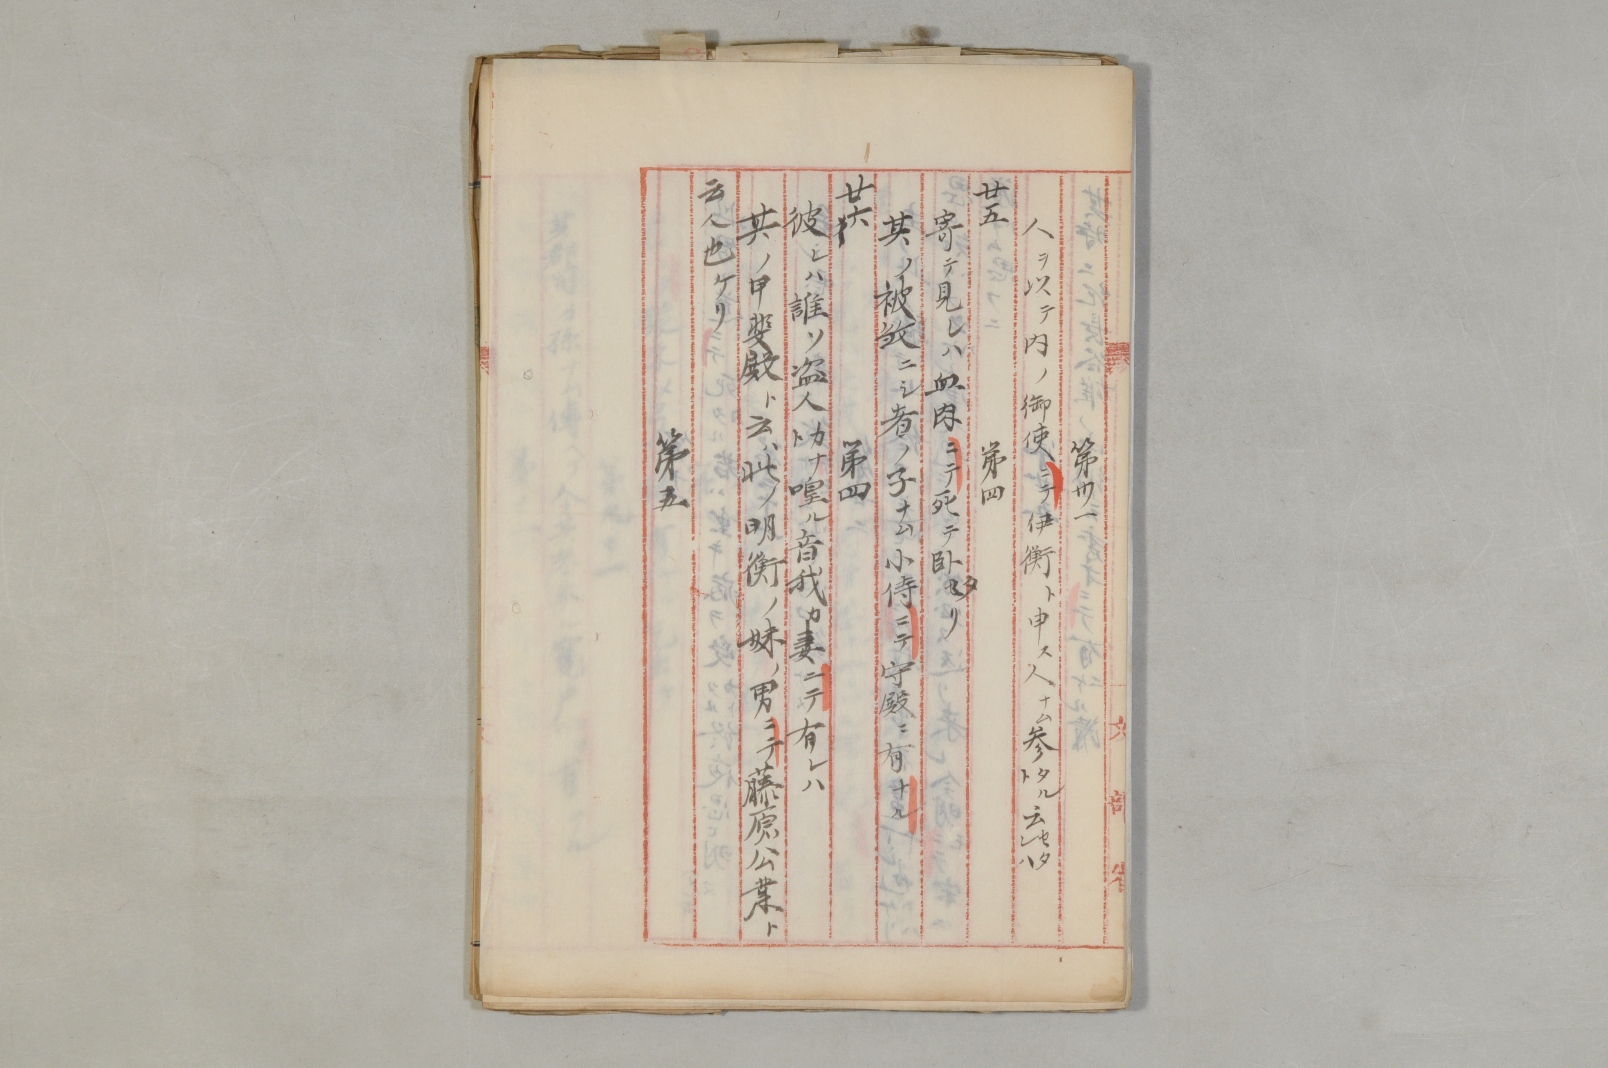 第卅一
人ヲ以テ内ノ御使ニテ伊衡ト申ス人ナム参タルト云セタレハ
廿五
第四
寄テ見レハ血肉ニテ死テ臥セタリ
其ノ被敵ニシ者ノ子ナム小侍ニテ守殿ニ有ナル
廿六
第四
彼レハ誰ソ盗人カナト喤ル音我カ妻ニテ有レハ
其ノ甲斐殿ト云ハ此ノ明衡ノ妹ノ男ニテ藤原公業ト
云人也ケリ
第五
文部省